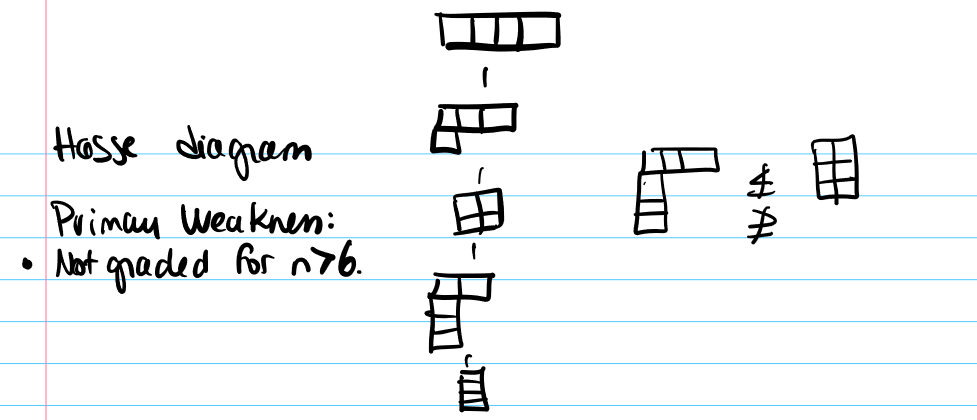 Hasse diagram
≰
≱
Primary Weakness:
• Not graded for n>6.